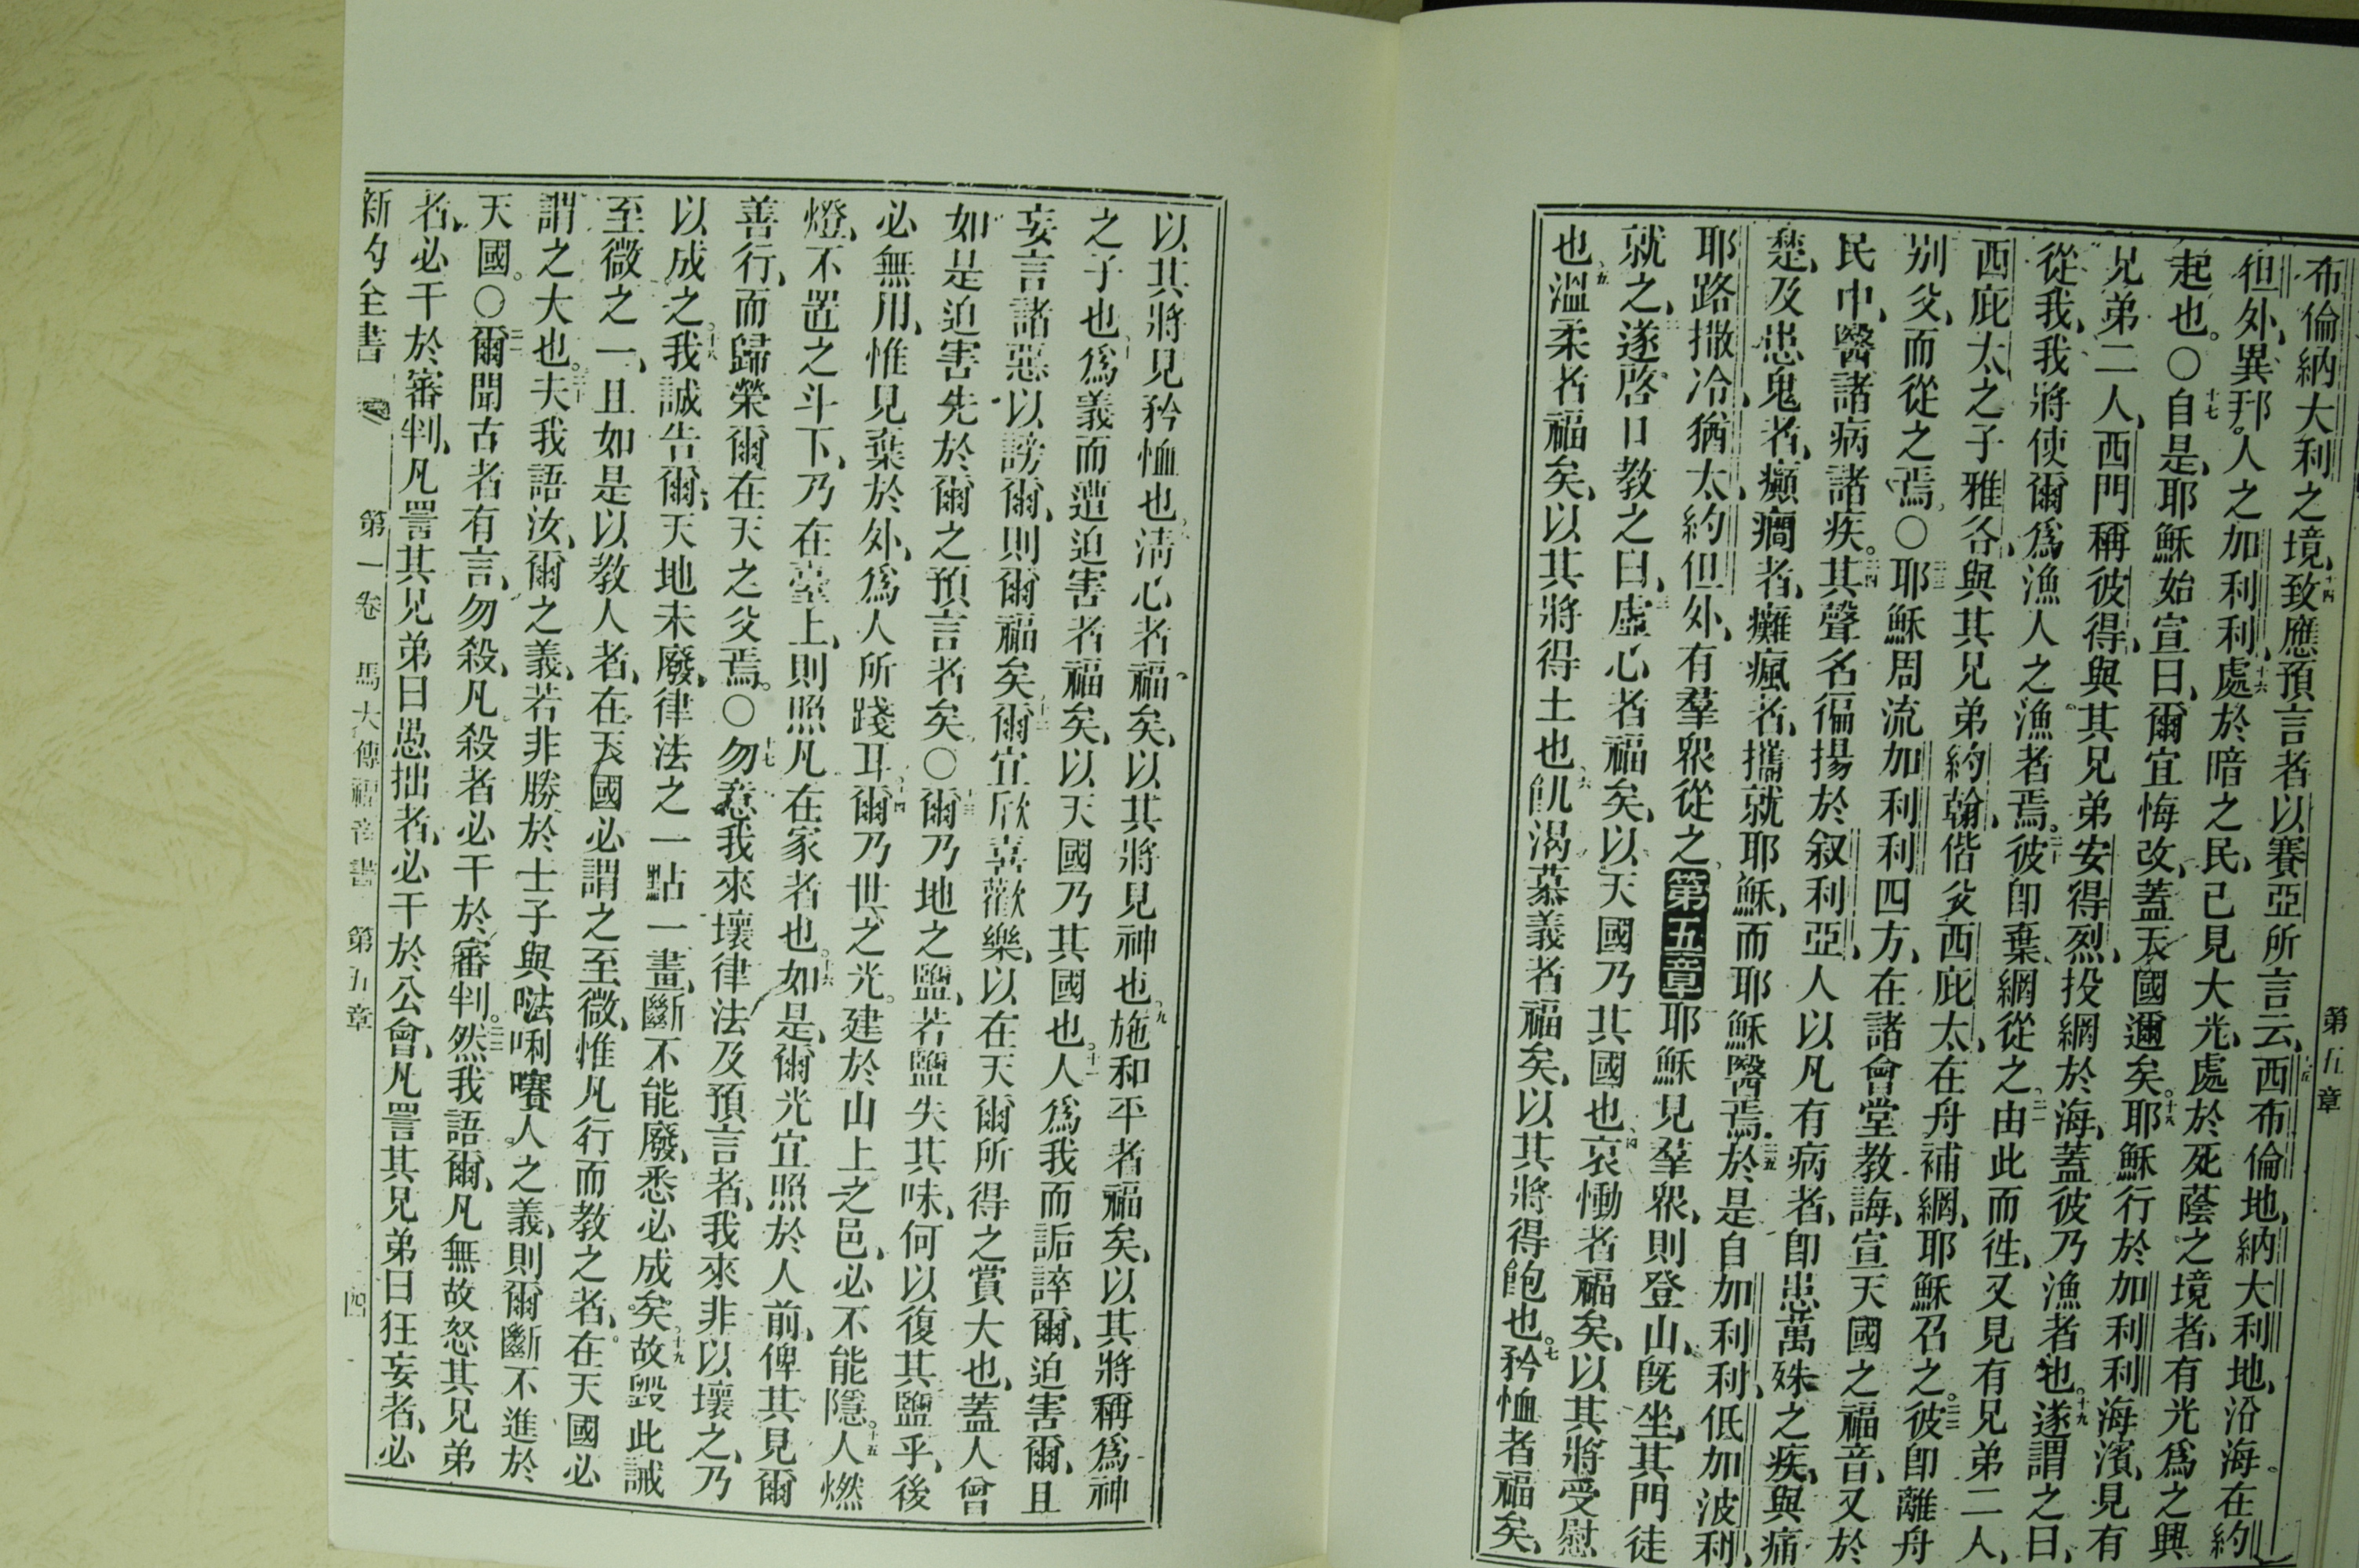 第五章
布倫納大利之境、十四致應預言者以賽亞所言云、十五西布倫地、納大利地、沿海。在約
但外、異邦人之加利利、十六處於暗之民、已見大光、處於死蔭之境者、有光爲之興
起也。〇十七自是、耶穌始宣曰、爾宜悔改、蓋天國邇矣。十八耶穌行於加利利海濱、見有
兄弟二人、西門稱彼得、與其兄弟安得烈、投網於海、蓋彼乃漁者也。十九遂謂之曰、
從我、我將使爾爲漁人之漁者焉。二十彼卽棄網從之、二一由此而徃、又見有兄弟二人、
西庇太之子雅各、與其兄弟約翰、偕父西庇太、在舟補網、耶穌召之。二二彼卽離舟
別父、而從之焉。〇二三耶穌周流加利利四方、在諸會堂敎誨、宣天國之福音、又於
民中、醫諸病諸疾。二四其聲名徧揚於叙利亞、人以凡有病者、卽患萬殊之疾、與痛
楚、及患鬼者、癲癎者、癱瘋者、攜就耶穌、而耶穌醫焉。二五於是自加利利、低加波利、
耶路撒冷、猶太、約但外、有羣衆從之。第五章耶穌見羣衆、則登山、旣坐、其門徒
就之、二遂啓口敎之曰、三虛心者福矣、以天國乃其國也、四哀慟者福矣、以其將受慰
也、五溫柔者福矣、以其將得土也、六飢渴慕義者福矣、以其將得飽也。七矜恤者福矣、
以其將見矜恤也、淸心者福矣、以其將見神也、九施和平者福矣、以其將稱爲神
之子也、十爲義而遭迫害者福矣、以天國乃其國也。十一人爲我而詬誶爾、迫害爾、且
妄言諸惡以謗爾、則爾福矣、十二爾宜欣喜歡樂、以在天爾所得之賞大也、蓋人曾
如是迫害先於爾之預言者矣、〇十三爾乃地之鹽、若鹽失其味、何以復其鹽乎、後
必無用、惟見棄於外、爲人所踐耳、十四爾乃世之光。建於山上之邑、必不能隱。十五人燃
燈、不置之斗下、乃在臺上、則照凡在家者也。十六如是、爾光宜照於人前、俾其見爾
善行、而歸榮爾在天之父焉。〇十七勿意我來壞律法及預言者、我來非以壞之、乃
以成之。十八我誠告爾、天地未廢、律法之一點一畫、斷不能廢、悉必成矣。十九故毀此誡
至微之一、且如是以敎人者、在天國必謂之至微、惟凡行而敎之者、在天國必
謂之大也。二十夫我語汝、爾之義、若非勝於士子與𠵽唎㘔人之義、則爾斷不進於
天國。〇二一爾聞古者有言、勿殺、凡殺者必干於審判。二二然我語爾、凡無故怒其兄弟
者、必干於審判、凡詈其兄弟曰愚拙者、必干於公會、凡詈其兄弟曰狂妄者、必
新約全書 第一卷 馬太傳福音書 第五章 四